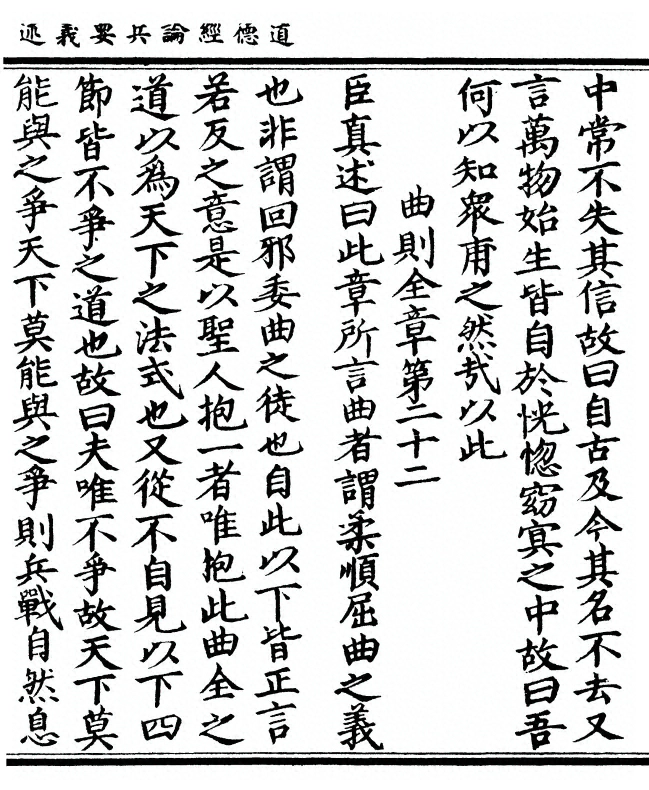 道德經論兵要義述
中常不失其信故曰自古及今其名不去又
言萬物始生皆自於恍惚窈冥之中故曰吾
何以知衆甫之然哉以此
曲則全章第二十二
臣真述曰此章所言曲者謂柔順屈曲之義
也非謂回邪委曲之徒也自此以下皆正言
若反之意是以聖人抱一者唯抱此曲全之
道以爲天下之法式也又從不自見以下四
節皆不爭之道也故曰夫唯不爭故天下莫
能與之爭天下莫能與之爭則兵戰自然息